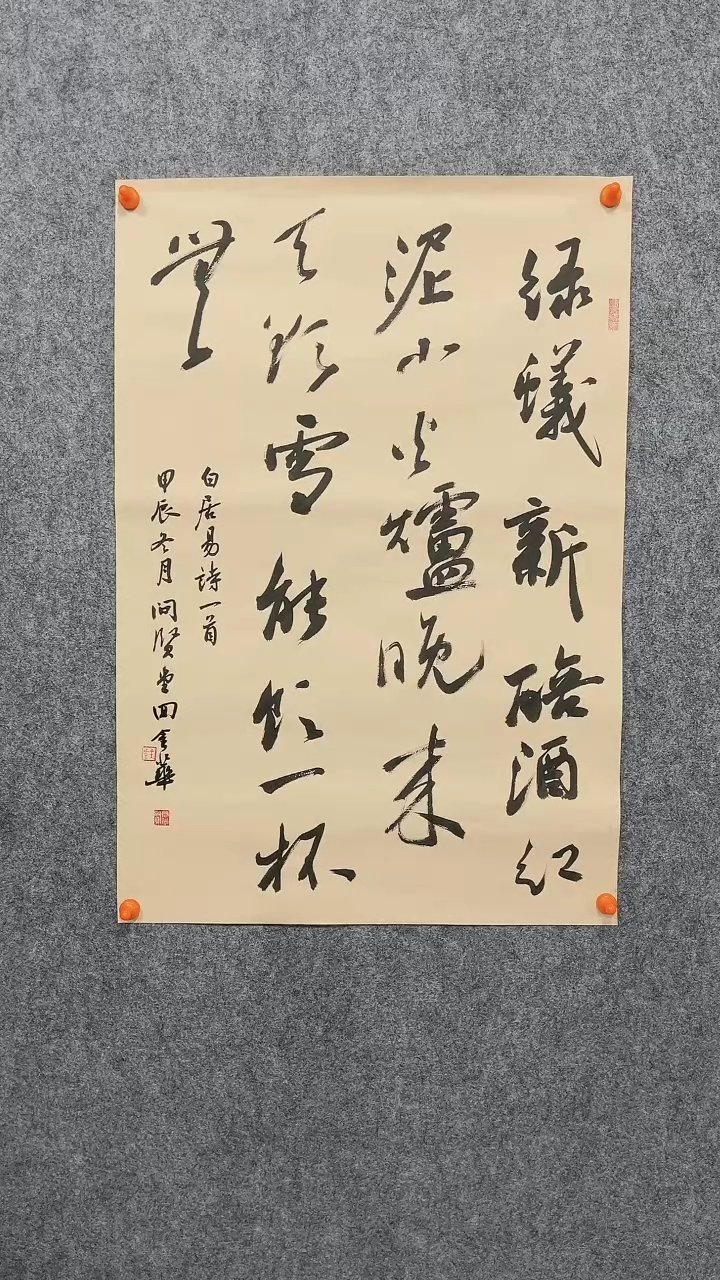 绿蟻新醅酒红
泥小火爐晚来
天欲雪能飲一杯
無
白居易詩一首
甲辰冬月问贤堂田金華